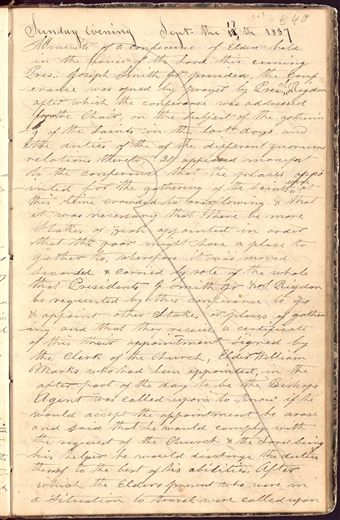 Sunday evening Sept. the 17th 1837
Minutes of a conference of Elders held
in the house of the Lord this evening
Pres. Joseph Smith jr. presided, the Conf
erence was opned by prayer by Pres. Rigdon
after which the conference was addressed
from the Chair, on the subject of the gatherin
g of the Saints in the last days and
the duties of the of the different quorums
relations thereto. It appeared manifest
to the conference that the places appo
inted for the gathering of the Saints were at
this time crowded to overflowing & that
it was necessary that there be more
Stakes of Zion appointed in order
that the poor might have a place to
gather to, wherefore it was moved
seconded & carried by vote of the whole
that Presidents J. Smith jr. & S. Rigdon
be requested by this conference to go
& appoint other Stakes, or places of gather
ing and that they receive a certificate
of this their appointment signed by
the Clerk of the Church, Elder William
Marks who had been appointed, in the
after part of the day to be the Bishops
Agent was called upon to know if he
would accept the appointment he arose
and said that he would comply with
the request of the Church & the Lord being
his helper he would discharge the duties
therof to the best of his abilities, After
which the Elders present who were in
a situation to travel were called upon